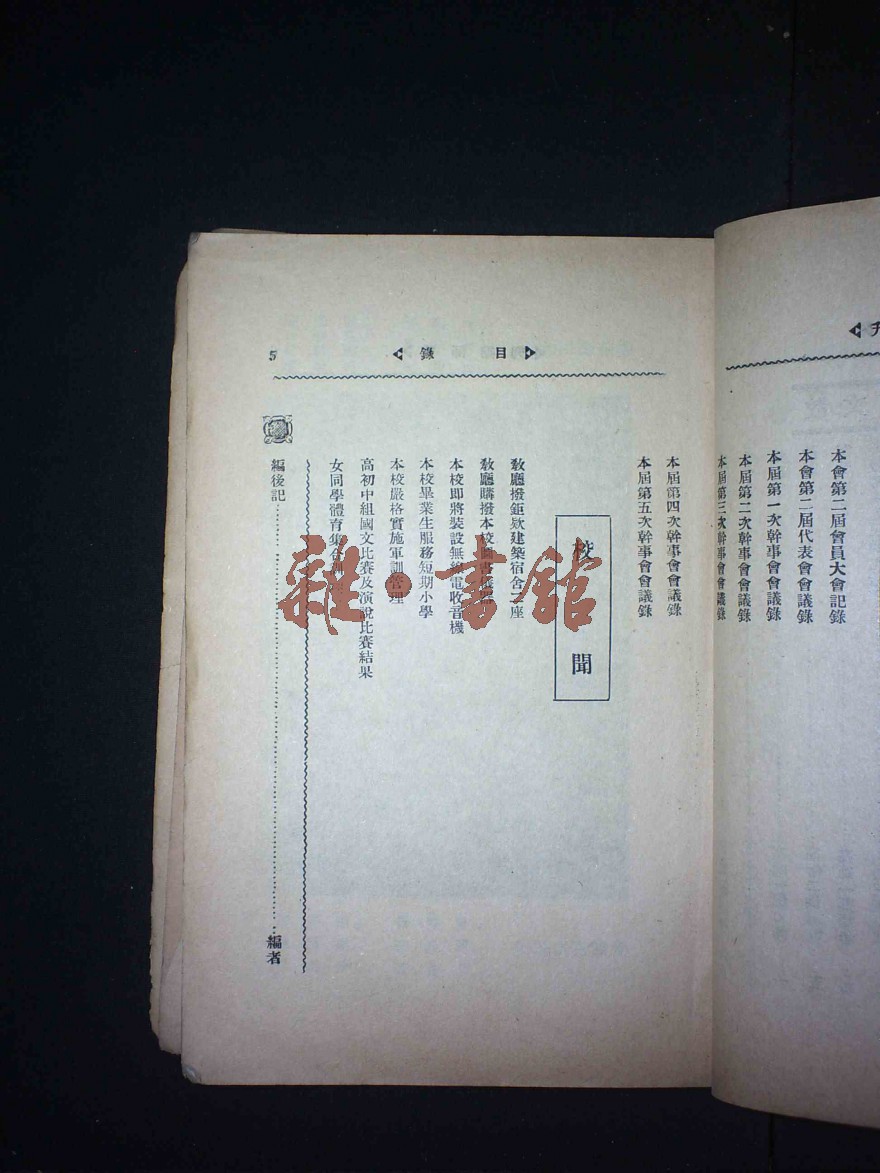 本會第二屆會員大會記錄
本會第二屆代表會會議錄
本屆第一次幹事會會議錄
本屆第二次幹事會會議錄
本屆第三次幹事會會議錄
目錄
5
本屆第四次幹事會會議錄
本屆第五次幹事會會議錄
校聞
敎廳撥鉅欵建築宿舍一座
敎廳購撥本校圖書儀器
本校即將裝設無線電收音機
本校畢業生服務短期小學
本校嚴格實施軍訓管理
高初中組國文比賽及演說比賽結果
女同學體育集合
編後記……編者
雜·書館